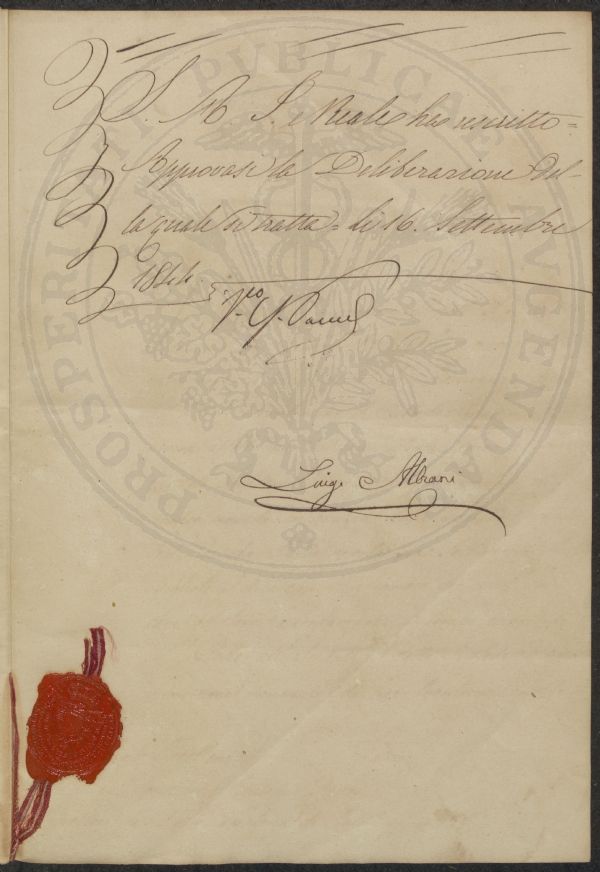 S. A. I. e Reale ha rescritto =
Approvasi la Deliberazione del-
la quale si tratta = li 16. Settembre
1844.
Luigi Albiani
PROSPERITATI PUBLICAE AUGENDAE